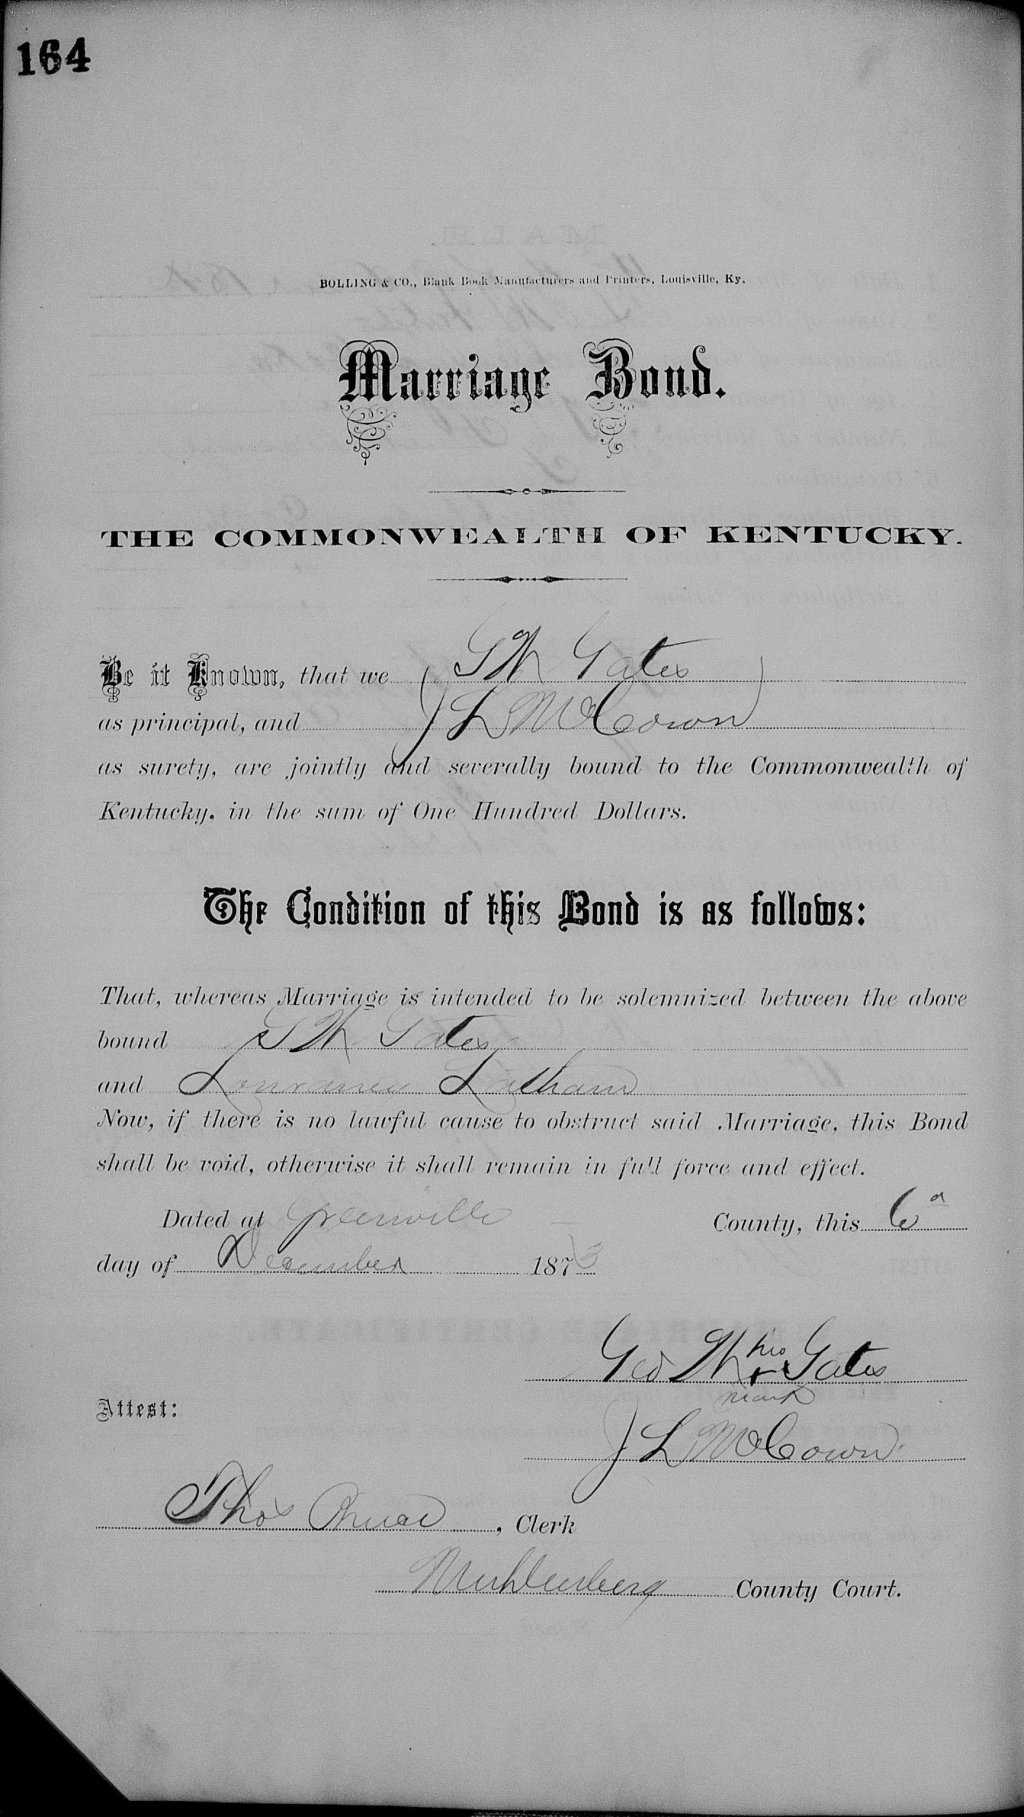 164
BOLLING & CO., Blank Book Manufacturers and Printers, Louisville, Ky.
Marriage Bond.
THE COMMONWEALTH OF KENTUCKY.
Be it Known, that we G W Gates
as principal, and J L McCown
as surety, are jointly and severally bound to the Commonwealth of
Kentucky, in the sum of One Hundred Dollars.
The Condition of this Bond is as follows:
That, whereas Marriage is intended to be solemnized between the above
bound G W Gates
and Latham
Now, if there is no lawful cause to obstruct said Marriage, this Bond
shall be void, otherwise it shall remain in full force and effect.
Dated at Greenville County, this 6d
day of December 1873
his
Geo W x Gates
mark
Attest:
J L McCown
Thos Bruce, Clerk
Muhlenberg County Court.